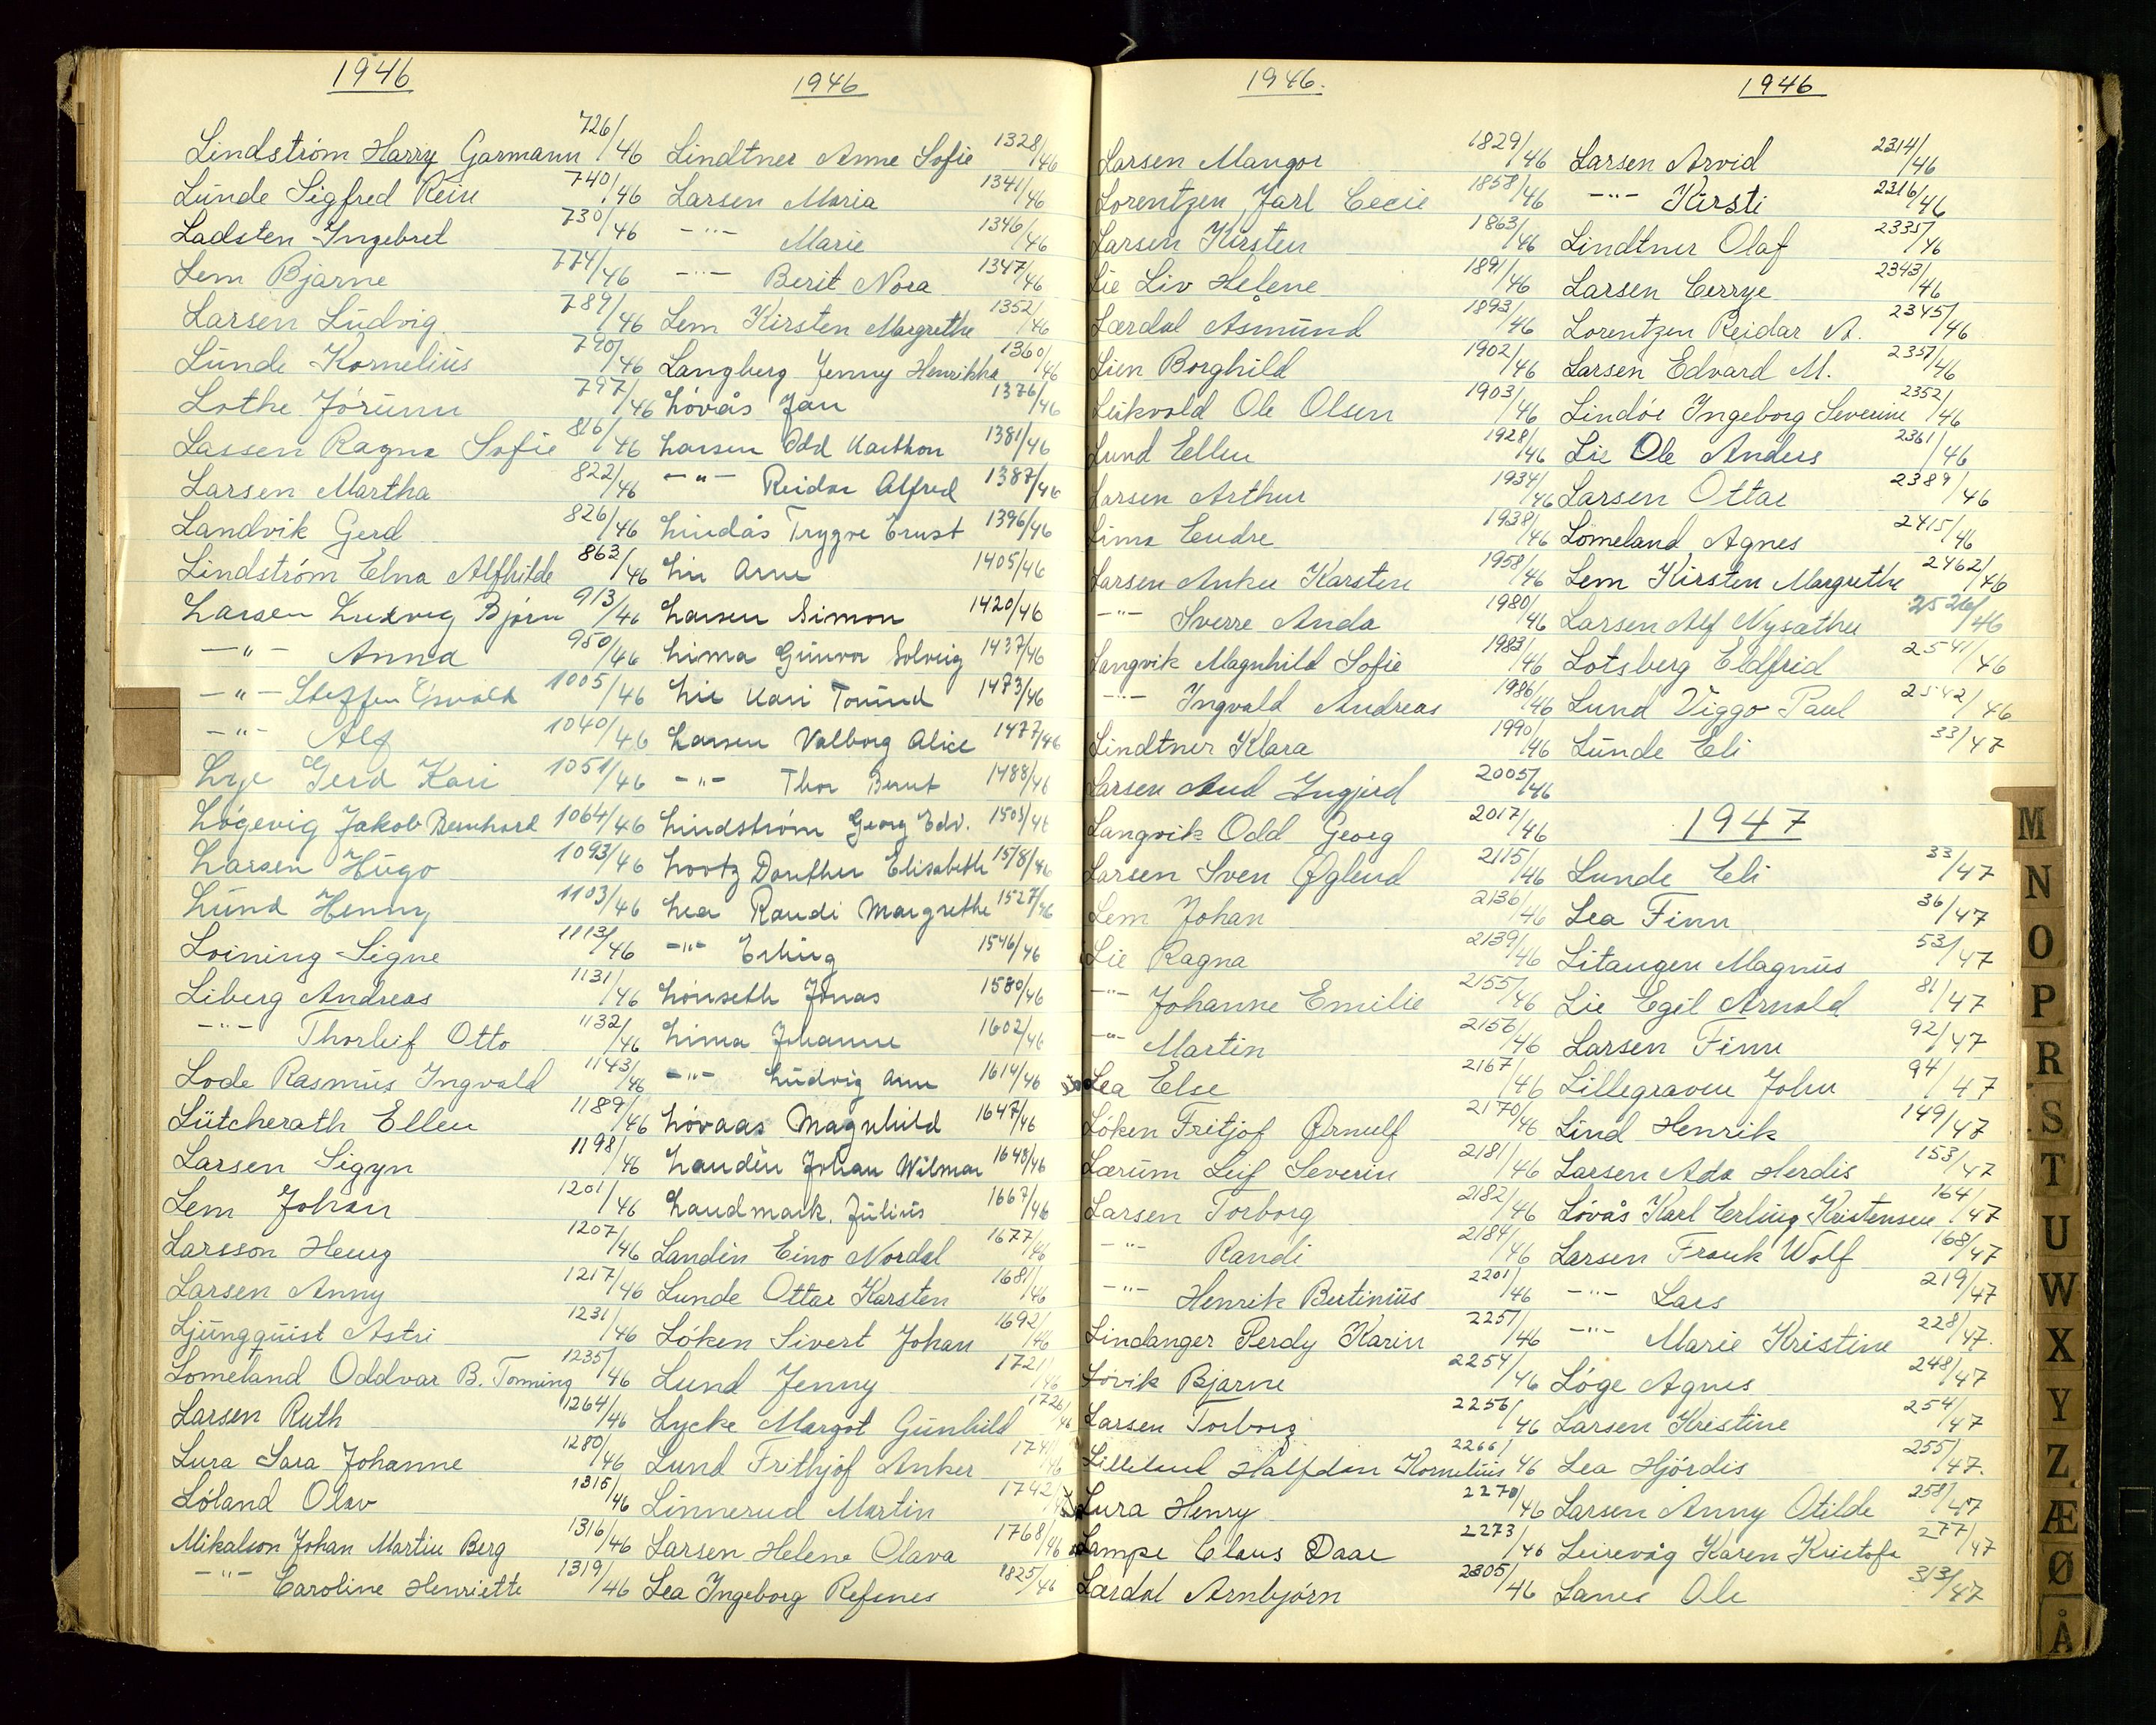 1946
Lindström Harry Garmann 726/46
Lunde Sigfred Rein 740/46
Ladsten Ingebret 730/46
Lem Bjarne 774/46
Larsen Ludvig 789/46
Lunde Kornelius 790/46
Lothe Jórunn 797/46
Lassen Ragna Sofie 816/46
Larsen Martha 822/46
Landvik Gerd 826/46
Lindström Elna Alfhilde 863/46
Larsen Ludvig Björn 913/46
-"- Anna 950/46
-"- Steffen Osvald 1005/46
-"- Alf 1040/46
Lye Gerd Kari 1051/46
Lógevig Jakob Bernhard 1064/46
Larsen Hugo 1093/46
Lund Henny 1103/46
Loining Signe 1113/46
Liberg Andreas 1131/46
-"- Thorleif Otto 1132/46
Lode Rasmus Ingvald 1143/46
Lütcherath Ellen 1189/46
Larsen Sigyn 1198/46
Lem Johan 1201/46
Larsson Henry 1207/46
Larsen Anny 1217/46
Ljungquist Astri 1231/46
Lomeland Oddvar B. Tonning 1235/46
Larsen Ruth 1264/46
Lura Sara Johanne 1280/46
Lóland Olav 1315/46
Mikalson Johan Martin Berg 1316/46
-"- Caroline Henriette 1319/46
1946
Lindtner Anne Sofie 1328/46
Larsen Maria 1341/46
-"- Marie 1346/46
-"- Berit Nora 1347/46
Lem Kirsten Margrethe 1352/46
Langberg Jenny Henrikka 1360/46
Lóvås Jan 1376/46
Larsen Odd Karthon 1381/46
-"- Reidar Alfred 1387/46
Lindås Trygve Ernst 1396/46
Lie Arne 1405/46
Larsen Simon 1420/46
Lima Gunvor Solveig 1437/46
Lie Kari Torund 1473/46
Larsen Valborg Alice 1477/46
-"- Thor Bernt 1488/46
Lindström Georg Edv. 1503/46
Lootz Dorothea Elisabeth 1518/46
Lea Randi Margrethe 1527/46
-"- Erling 1546/46
Lónseth Jonas 1580/46
Lima Johanne 1602/46
-"- Ludvig Arne 1614/46
Lóvaas Magnhild 1647/46
Landén Johan Wilmar 1648/46
Landmark Julius 1667/46
Landén Eino Nordal 1677/46
Lunde Ottar Karsten 1681/46
Lóken Sivert Johan 1692/46
Lund Jenny 1721/46
Lycke Margot Gunhild 1726/46
Lund Frithjof Anker 1741/46
Linnerud Martin 1742/46
Larsen Helene Olava 1768/46
Lea Ingeborg Refsnes 1825/46
1946.
Larsen Mangor 1829/46
Lorentzen Jarl Cecil 1858/46
Larsen Kirsten 1863/46
Lie Liv Helene 1891/46
Lærdal Åsmund 1893/46
Lien Borghild 1902/46
Leikvold Ole Olsen 1903/46
Lund Ellen 1928/46
Larsen Arthur 1934/46
Lima Endre 1938/46
Larsen Anker Karsten 1958/46
-"- Sverre Anda 1980/46
Langvik Magnhild Sofie 1983/46
-"- Ingvald Andreas 1986/46
Lindtner Klara 1990/46
Larsen Aud Ingjerd 2005/46
Langvik Odd Georg 2017/46
Larsen Sven Øglend 2115/46
Lem Johan 2136/46
Lie Ragna 2139/46
-"- Johanne Emilie 2155/46
-"- Martin 2156/46
Lea Else 2167/46
Lóken Fritjof Ørnulf 2170/46
Lærum Leif Severin 2181/46
Larsen Torborg 2182/46
-"- Randi 2184/46
-"- Henrik Bertinius 2201/46
Lindanger Perdy Karin 2251/46
Lóvik Bjarne 2254/46
Larsen Torborg 2256/46
Lillelund Halfdan Kornelius 2266/46
Lura Henry 2270/46
Lampe Claus Daae 2273/46
Lærdal Arnbjórn 2305/46
1946
Larsen Arvid 2314/46
-"- Kirsti 2316/46
Lindtner Olaf 2335/46
Larsen Cerrye 2343/46
Lorentzen Reidar A. 2345/46
Larsen Edvard M. 2351/46
Lindóe Ingeborg Severine 2352/46
Lie Ole Anders 2361/46
Larsen Ottar 2389/46
Lomeland Agnes 2415/46
Lem Kirsten Margrethe 2462/46
Larsen Alf Nysæther 2526/46
Lotsberg Eldfrid 2541/46
Lund Viggo Paul 2542/46
Lunde Eli 33/47
1947
Lunde Eli 33/47
Lea Finn 36/47
Litangen Magnus 53/47
Lie Egil Arnold 81/47
Larsen Finn 92/47
Lillegraven John 94/47
Lind Henrik 149/47
Larsen Ada Herdis 153/47
Lóvås Karl Erling Kristensen 164/47
Larsen Frank Wolf 168/47
-"- Lars 219/47
-"- Marie Kristine 228/47.
Lóge Agnes 248/47
Larsen Kristine 254/47
Lea Hjórdis 255/47.
Larsen Anny Otilde 258/47
Leirevåg Karen Kristofa 277/47
Lanes Ole 313/47
M
N
O
P
R
S
T
U
W
X
Y
Z
Æ
Ø
Å